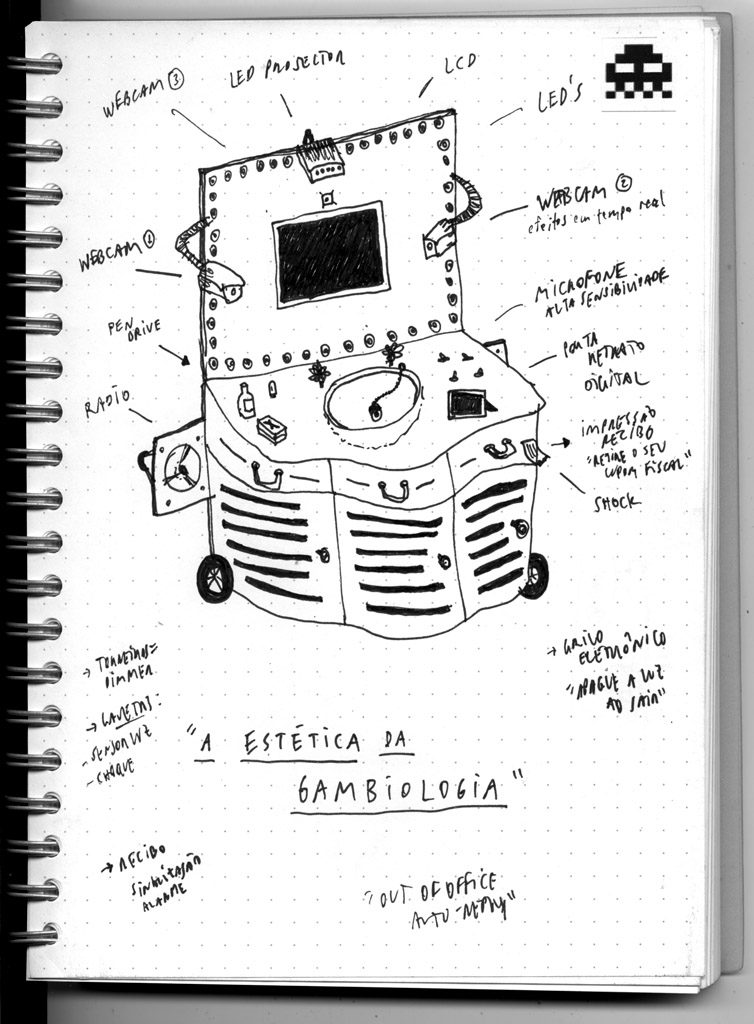 WEBCAM ③
LED PROJECTOR
LCD
LED'S
WEBCAM ②
efeitos em tempo real
WEBCAM ①
MICROFONE
ALTA SENSIBILIDADE
PEN
DRIVE
PORTA
RETRATO
DIGITAL
RADIO
IMPRESSÃO
RECIBO
"RETIRE O SEU
CUPOM FISCAL"
SHOCK
→ TORNEIRAS =
DIMMER
→ GRILO
ELETRÔNICO
"APAGUE A LUZ
AO SAIR"
→ GAVETAS:
- SENSOR LUZ
- CHOQUE
"A ESTÉTICA DA
GAMBIOLOGIA"
→ RECIBO
SINALIZAÇÃO
ALARME
"OUT OF OFFICE
AUTO-REPLY"